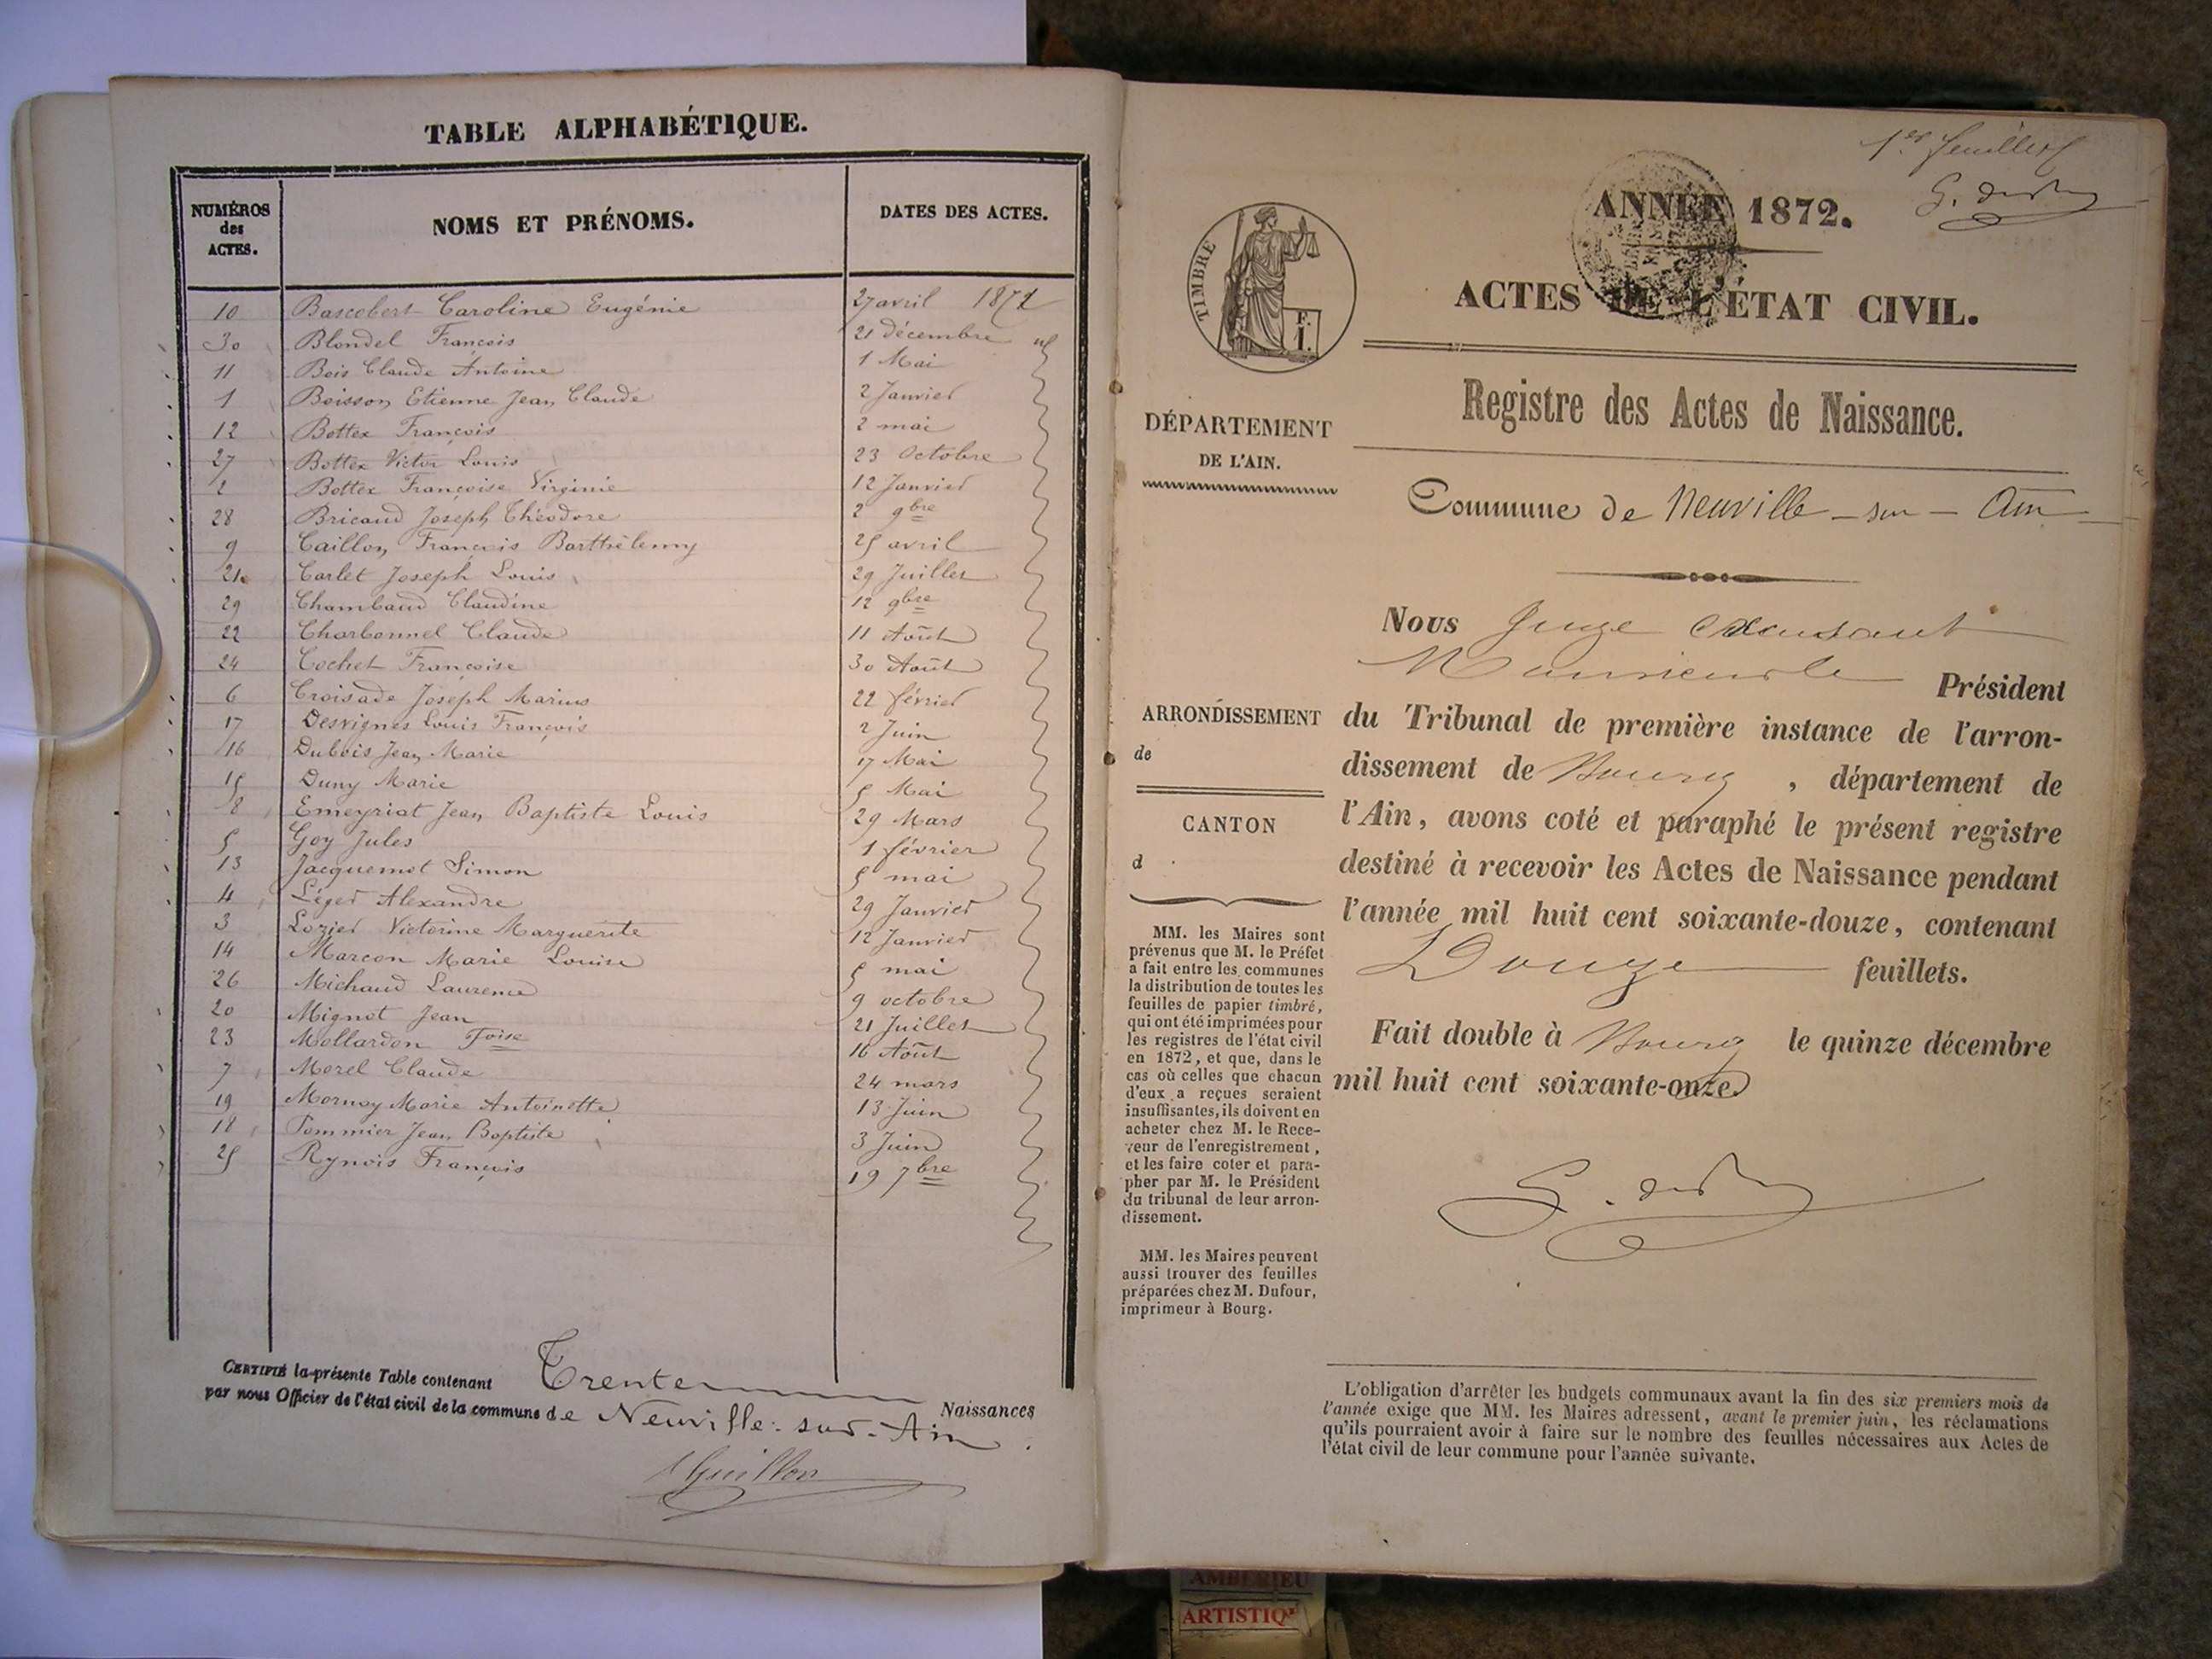 TABLE ALPHABÉTIQUE.
NUMÉROS des ACTES. NOMS ET PRÉNOMS. DATES DES ACTES.
10 Bascobert Caroline Eugénie 27 avril 1871
30 Blondel François 21 Décembre
11 Bois Claude Antoine 1 Mai
1 Boisson Etienne Jean Claude 2 Janvier
12 Bottex François 2 mai
27 Bottex Victor Louis 23 Octobre
2 Bottex Françoise Virginie 12 Janvier
28 Bricaud Joseph Théodore 2 9bre
9 Caillon François Barthélemy 25 avril
21 Carlet Joseph Louis 29 Juillet
29 Chambaud Claudine 12 9bre
22 Charbonnel Claude 11 Août
24 Cochet Françoise 30 Août
6 Croisade Joseph Marius 22 février
17 Desvignes Louis François 2 Juin
16 Dubois Jean Marie 17 Mai
15 Duny Marie 5 Mai
8 Emeyriat Jean Baptiste Louis 29 Mars
5 Goy Jules 1 février
13 Jacquemot Simon 5 mai
4 Léger Alexandre 29 Janvier
3 Lozier Victorine Marguerite 12 Janvier
14 Marcon Marie Louise 5 mai
26 Michaud Laurence 9 octobre
20 Mignot Jean 21 Juillet
23 Mollardon Foise 16 Août
7 Morel Claude 24 mars
19 Mornay Marie Antoinette 13 Juin
18 Pommier Jean Baptiste 3 Juin
25 Rynois François 19 7bre
CERTIFIÉ la présente Table contenant Trente Naissances
par nous Officier de l'état civil de la commune de Neuville-sur-Ain.
Guillon
1er feuillet
ANNÉE 1872.
ACTES DE L'ÉTAT CIVIL.
TIMBRE
F.
1.
Registre des Actes de Naissance.
DÉPARTEMENT
DE L'AIN.
Commune de Neuville-sur-Ain
Nous Juge
Monsieur le Président
ARRONDISSEMENT
de
CANTON
d
du Tribunal de première instance de l'arron-
dissement de Bourg, département de
l'Ain, avons coté et paraphé le présent registre
destiné à recevoir les Actes de Naissance pendant
l'année mil huit cent soixante-douze, contenant
Douze feuillets.
Fait double à Bourg le quinze décembre
mil huit cent soixante-onze
MM. les Maires sont
prévenus que M. le Préfet
a fait entre les communes
la distribution de toutes les
feuilles de papier timbré,
qui ont été imprimées pour
les registres de l'état civil
en 1872, et que, dans le
cas où celles que chacun
d'eux a reçues seraient
insuffisantes, ils doivent en
acheter chez M. le Rece-
veur de l'enregistrement,
et les faire coter et para-
pher par M. le Président
du tribunal de leur arron-
dissement.
MM. les Maires peuvent
aussi trouver des feuilles
préparées chez M. Dufour,
imprimeur à Bourg.
L'obligation d'arrêter les budgets communaux avant la fin des six premiers mois de
l'année exige que MM. les Maires adressent, avant le premier juin, les réclamations
qu'ils pourraient avoir à faire sur le nombre des feuilles nécessaires aux Actes de
l'état civil de leur commune pour l'année suivante.
AMBERIEU
ARTISTIQ